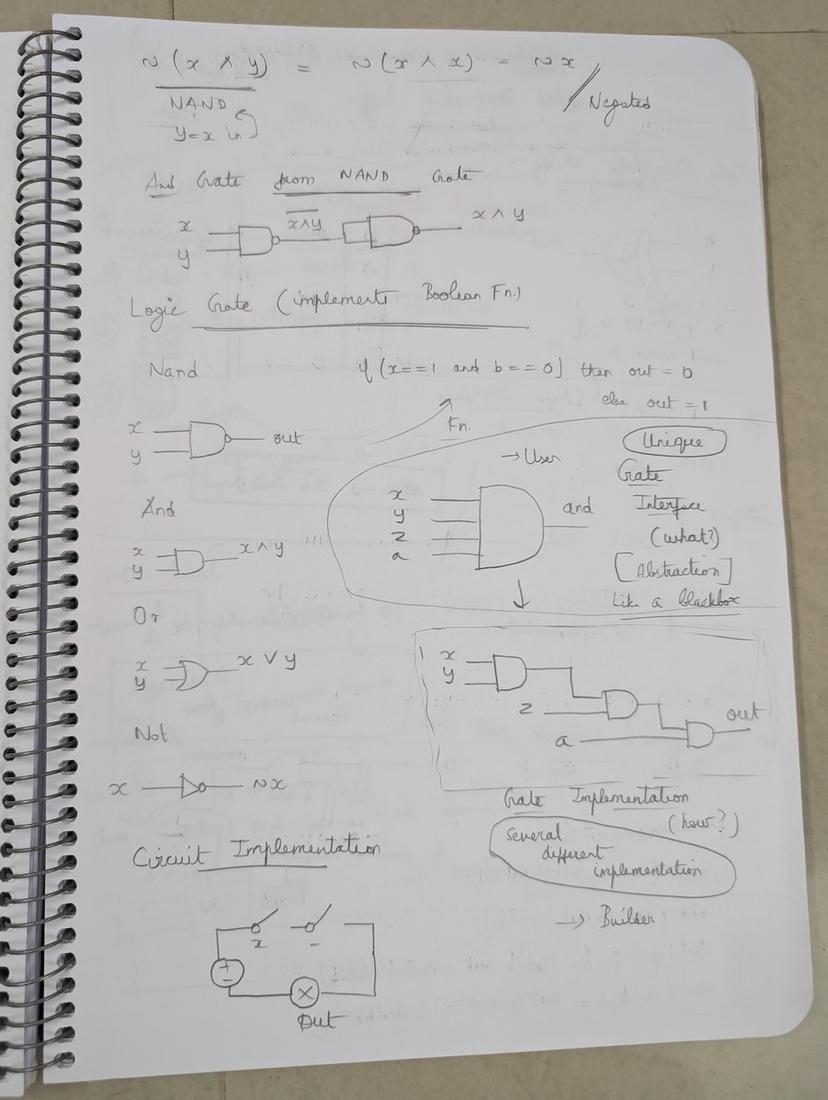 ~ (x ∧ y) = ~ (x ∧ x) = ~x
NAND
y=x in
Negated
And Gate from NAND Gate
x
y
x∧y
x ∧ y
Logic Gate (implements Boolean Fn.)
Nand
if (x==1 and b==0) then out = 0
else out = 1
Fn.
x
y
out
→ User
Unique
Gate
Interface
(what?)
[Abstraction]
Like a blackbox
x
y
z
a
and
And
x
y
x ∧ y
Or
x
y
x ∨ y
x
y
z
a
out
Not
x
~x
Gate Implementation
(how?)
Several
different
implementation
→ Builder
Circuit Implementation
x
-
+
-
Out